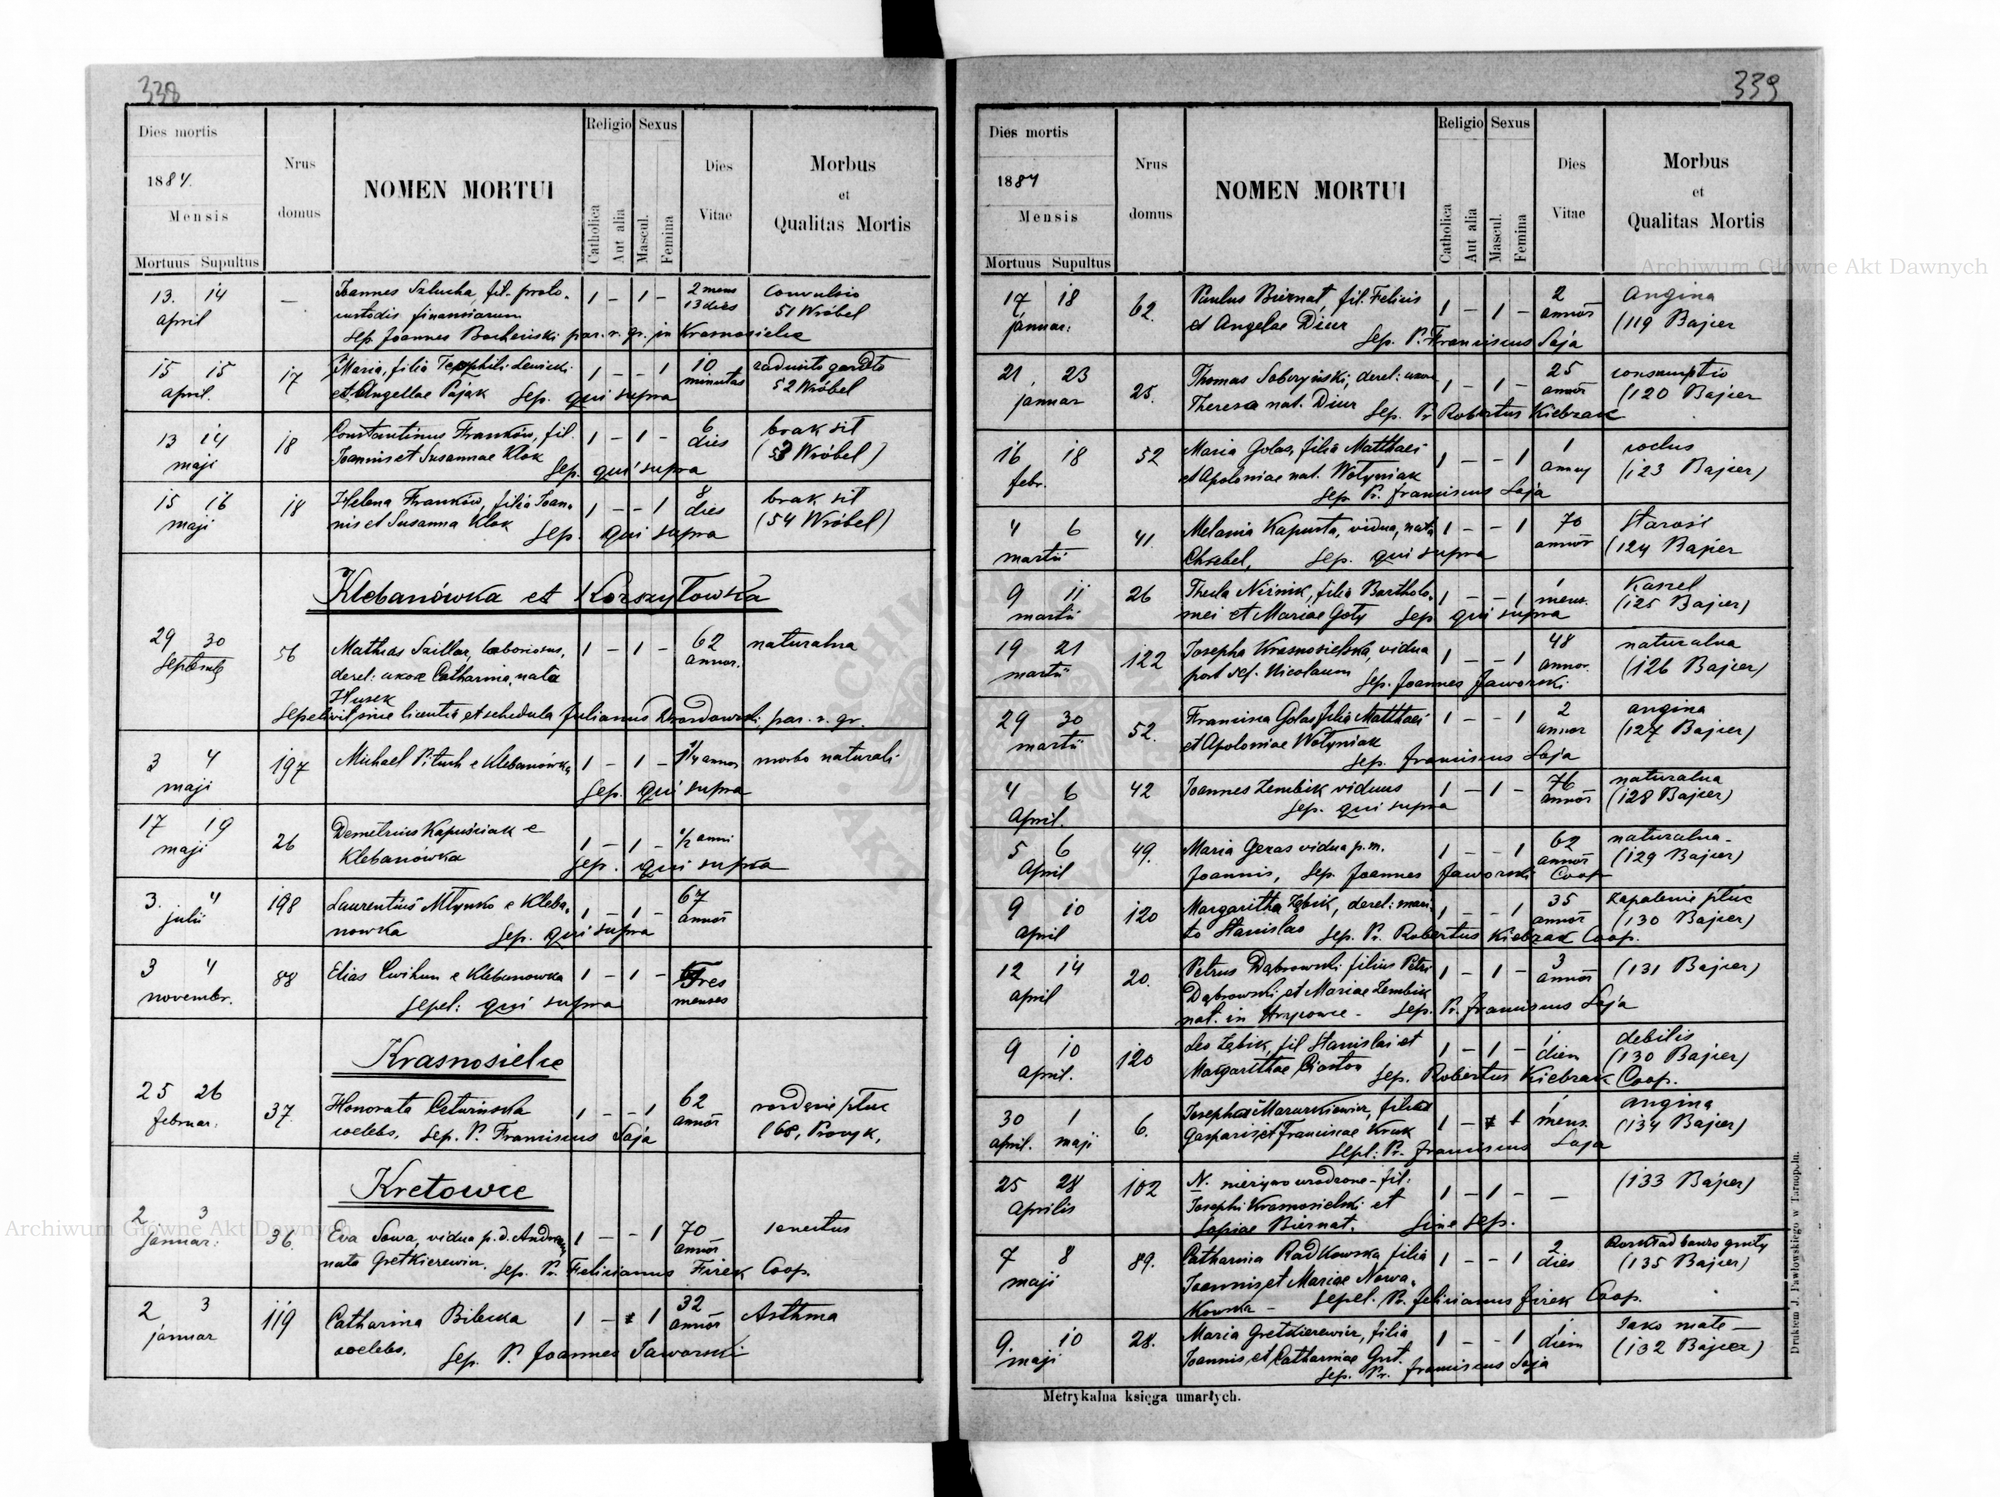 338
Dies mortis
1884.
Mensis
Mortuus Supultus
Nrus
domus
NOMEN MORTUI
Religio
Catholica
Aut alia
Sexus
Mascul.
Femina
Dies
Vitae
Morbus
et
Qualitas Mortis
13. 14 — Joannes Szlucha, fil. proto. 1 – 1 – 2 mens Convulsio
april custodis financiarum 13 dies 51 Wróbel
Sep. Joannes Bocheński par. r. gr. in Krasnosielce
15 15 17 Maria, filia Teophili Lewicki 1 – – 1 10
april. et Angellae Pająk Sep. qui supra minutas 52 Wróbel
13 14 18 Constantinus Franków, fil. 1 – 1 – 6 brak sił
maji Joannis et Susannae Klok dies (53 Wróbel)
Sep. qui supra
15 16 18 Helena Franków, filia Joan- 1 – – 1 8 brak sił
maji nis et Susanna Klok dies (54 Wróbel)
Sep. qui supra
Klebanówka et Korszyłowka
29 30 56 Mathias Saillar, laboriosus, 1 – 1 – 62 naturalna
Septemb derel: uxore Catharina, nata annor.
Husek
Sepelivit sine licentia et schedula Julianus par. r. gr.
3 4 197 Michael Pituch e Klebanówka 1 – 1 – 1¼ annor morbo naturali
maji Sep. qui supra
17 19 26 Demetrius Kapuściak e 1 – 1 – ½ anni
maji Klebanówka
Sep. qui supra
3. 4 198 Laurentius Młynko e Kleba- 1 – 1 – 67
julii nowka Sep. qui supra annor
3 4 88 Elias Cwihun e Klebanowka 1 – 1 – Tres
novembr. Sepel: qui supra menses
Krasnosielce
25 26 37. Honorata Cetwinska 1 – – 1 62
februar. coelebs. Sep. P. Franciscus Saja annor (68, Prosyk,
Kretowce
2 3 36. Eva Sowa, vidua p. d. Andreae 1 – – 1 70 senectus
januar: nata Gretkierewicz. Sep. Pr. Felicianus Firek Coop. annor
2 3 119 Catharina Bilecka 1 – 1 32 Asthma
januar coelebs. annor
Sep. P. Joannes Jaworski
339
Dies mortis
1884
Mensis
Mortuus Supultus
Nrus
domus
NOMEN MORTUI
Religio
Catholica
Aut alia
Sexus
Mascul.
Femina
Dies
Vitae
Morbus
et
Qualitas Mortis
17 18 62. Paulus Biernat, fil. Felicis 1 – 1 – 2 Angina
januar: et Angelae Diur annor (119 Bajcer
Sep. P. Franciscus Saja
21 23 25. Thomas Soboryński, derel: uxore 1 – 1 – 25 consumptio
januar Theresa nat. Diur annor (120 Bajcer
Sep. Pr Robertus Kiebzak
16 18 52 Maria Golas, filia Matthaei 1 – – 1 1
febr. et Apoloniae nat. Wołyniak (123 Bajcer)
Sep. Pr. Franciscus Saja
4 6 41. Melania Kapusta, vidua, nata 1 – – 1 70 Starość
martii Chrebel, Sep. qui supra annor (124 Bajcer
9 11 26 Thecla Niżnik, filia Bartholo- 1 – – 1 1 Kaszel
martii mei et Mariae Goty Sep. qui supra mens. (125 Bajcer)
19 21 122 Josepha Krasnosielska, vidua 1 – – 1 48 naturalna
martii post def. Nicolaum annor. (126 Bajcer)
Sep. Joannes Jaworski
29 30 52. Francisca Golas filia Matthaei 1 – – 1 2 angina
martii et Apoloniae Wołyniak annor (127 Bajcer)
Sep. Franciscus Saja
4 6 42 Joannes Zembik viduus 1 – 1 – 76 naturalna
April. Sep. qui supra annor (128 Bajcer)
5 6 49. Maria Geras vidua p.m. 1 – – 1 62 naturalna
April Joannis, Sep. Joannes Jaworski Coop annor (129 Bajcer)
9 10 120 Margaritha Zębik, derel: mari- 1 – – 1 35 Zapalenie płuc
April to Stanislao annor (130 Bajcer)
Sep. Pr. Robertus Kiebzak Coop.
12 14 20. Petrus Dąbrowski filius Petri 1 – 1 – 3 (131 Bajcer)
april Dąbrowski et Mariae Zembik annor
nat. in Hrycowce – Sep. Pr. Franciscus Saja
9 10 120 Leo Zębik, fil Stanislai et 1 – 1 – 1 debilis
April. Margarithae Ciastoń diem (130 Bajcer)
Sep. Robertus Kiebzak Coop.
30 1 6. Mazurkiewicz, 1 – 1 1 angina
april. maji Gasparis et Franciscae Kruk mens. (134 Bajcer)
Sepel: Pr. Franciscus Saja
25 28 102 N. nieżywo urodzone – fil: 1 – 1 – – (133 Bajcer)
Aprilis Josephi Krasnosielski et
Sofiae Biernat. Sine sep.
7 8 89. Catharina Radkowska filia 1 – – 1 2
maji Joannis et Mariae Nowa- dies (135 Bajcer)
kowska – Sepel. Pr. Felicianus Firek Coop.
9. 10 28. Maria Gretkierewicz, filia 1 – – 1 1
maji Joannis et Catharinae Gut. diem (132 Bajcer)
Sep. Pr. Franciscus Saja
Metrykalna księga umarłych.
Drukiem J. Pawłowskiego w Tarnopolu.
Archiwum Główne Akt Dawnych
Archiwum Główne Akt Dawnych